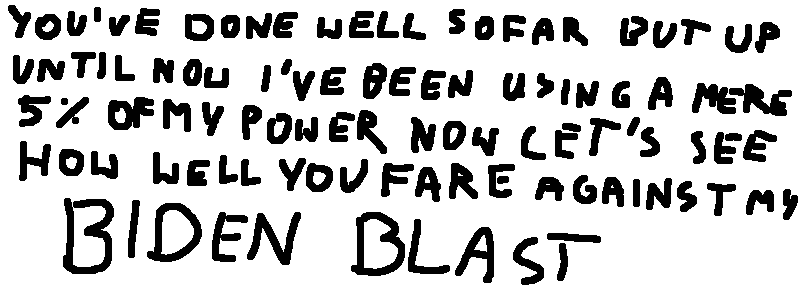 YOU'VE DONE WELL SO FAR BUT UP
UNTIL NOW I'VE BEEN USING A MERE
5% OF MY POWER NOW LET'S SEE
HOW WELL YOU FARE AGAINST MY
BIDEN BLAST